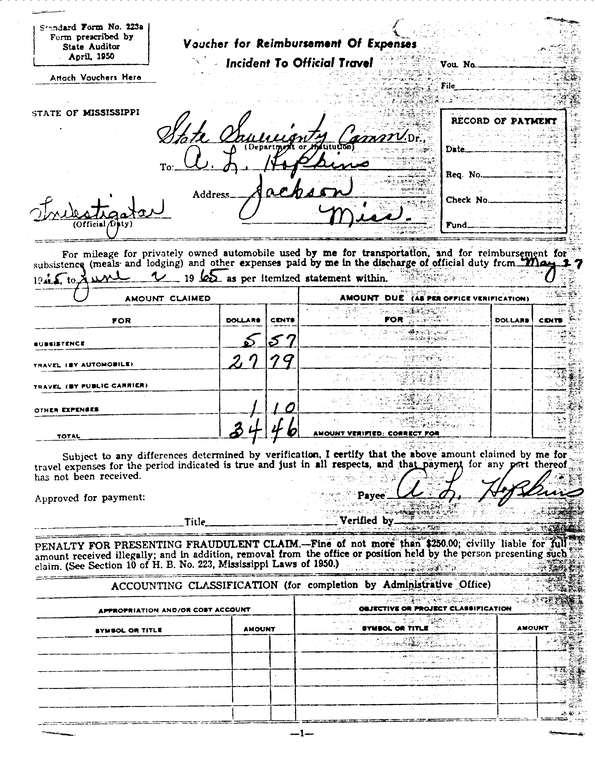 Standard Form No. 223a
Form prescribed by
State Auditor
April, 1950
Attach Vouchers Here
Voucher for Reimbursement Of Expenses
Incident To Official Travel
Vou. No.
File
STATE OF MISSISSIPPI
State Sovereignty Comm Dr.,
(Department or Institution)
To: A. L. Hopkins
Address Jackson
Miss.
Investigator
(Official Duty)
RECORD OF PAYMENT
Date
Req. No.
Check No.
Fund
For mileage for privately owned automobile used by me for transportation, and for reimbursement for
subsistence (meals and lodging) and other expenses paid by me in the discharge of official duty from May 27
1965 to June 2 1965 as per itemized statement within.
AMOUNT CLAIMED AMOUNT DUE (AS PER OFFICE VERIFICATION)
FOR DOLLARS CENTS FOR DOLLARS CENTS
SUBSISTENCE 5 57
TRAVEL (BY AUTOMOBILE) 27 79
TRAVEL (BY PUBLIC CARRIER)
OTHER EXPENSES 1 10
TOTAL 34 46 AMOUNT VERIFIED: CORRECT FOR
Subject to any differences determined by verification, I certify that the above amount claimed by me for
travel expenses for the period indicated is true and just in all respects, and that payment for any part thereof
has not been received.
Approved for payment: Payee A. L. Hopkins
Title Verified by
PENALTY FOR PRESENTING FRAUDULENT CLAIM.—Fine of not more than $250.00; civilly liable for full
amount received illegally; and in addition, removal from the office or position held by the person presenting such
claim. (See Section 10 of H. B. No. 223, Mississippi Laws of 1950.)
ACCOUNTING CLASSIFICATION (for completion by Administrative Office)
APPROPRIATION AND/OR COST ACCOUNT OBJECTIVE OR PROJECT CLASSIFICATION
SYMBOL OR TITLE AMOUNT SYMBOL OR TITLE AMOUNT
—1—